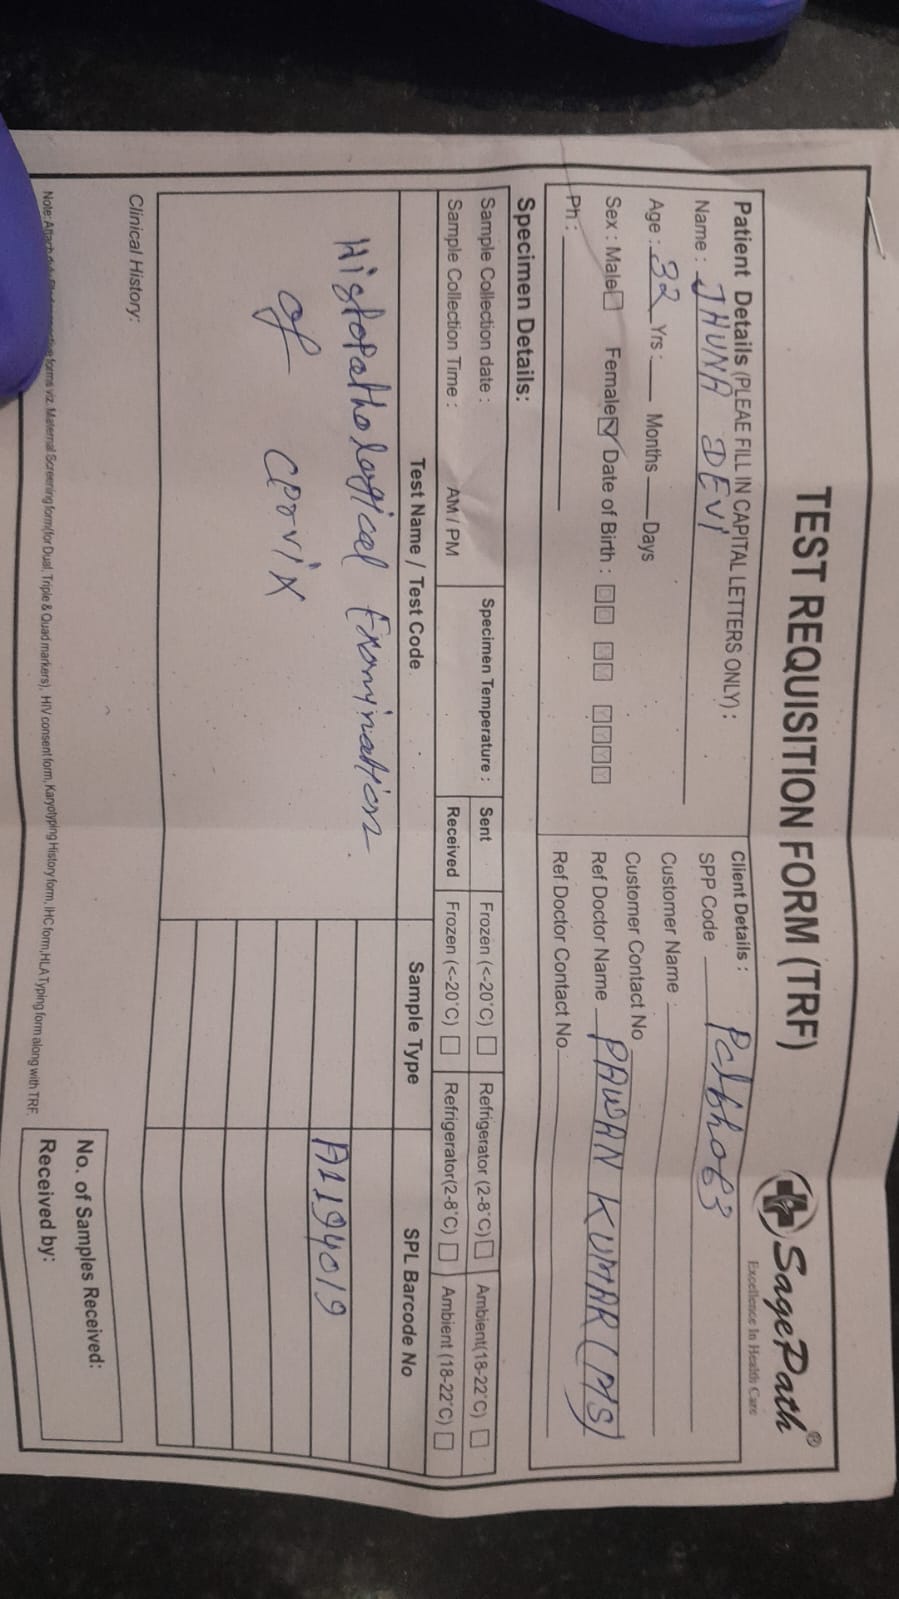 TEST REQUISITION FORM (TRF)
SagePath®
Excellence In Health Care
Patient Details (PLEAE FILL IN CAPITAL LETTERS ONLY) :
Name : JHUNA DEVI
Age : 32 Yrs : Months Days
Sex : Male Female Date of Birth :
Ph :
Client Details :
SPP Code Pcbh063
Customer Name :
Customer Contact No
Ref Doctor Name PAWAN KUMAR (MS)
Ref Doctor Contact No
Specimen Details:
Sample Collection date :
Sample Collection Time : AM / PM
Specimen Temperature :
Sent Frozen (<-20°C) Refrigerator (2-8°C) Ambient(18-22°C)
Received Frozen (<-20°C) Refrigerator(2-8°C) Ambient (18-22°C)
Test Name / Test Code Sample Type SPL Barcode No
Histopathological Examination
A1194019
of Cervix
Clinical History:
Note: forms viz. Maternal Screening form(for Dual, Triple & Quad markers), HIV consent form, Karyotyping History form, IHC form,HLA Typing form along with TRF.
No. of Samples Received:
Received by: